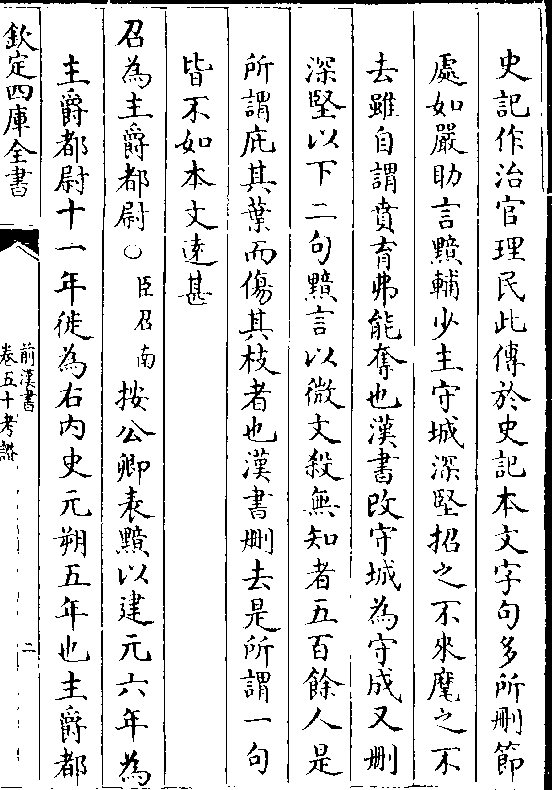 史記作治官理民此傳於史記本文字句多所刪節
處如嚴助言黯輔少主守城深堅招之不來麾之不
去雖自謂賁育弗能奪也漢書改守城為守成又刪
深堅以下二句黯言以微文殺無知者五百餘人是
所謂庇其葉而傷其枝者也漢書刪去是所謂一句
皆不如本文逺甚
召為主爵都尉○臣召南按公卿表黯以建元六年為
主爵都尉十一年徙為右内史元朔五年也主爵都
欽定四庫全書
前漢書
卷五十考證
二